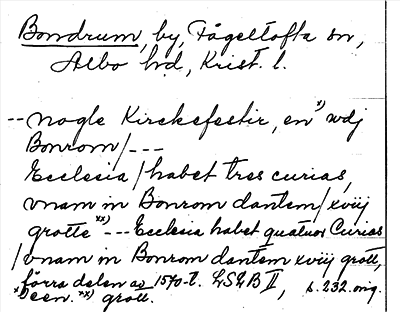 Bondrum, by, Fågeltofta sn,
Albo hd, Krist. l.
-- nogle Kirckefestir, en x) wdj
Bonrom / ---
Ecclesia / habet tres curias,
vnam in Bonrom dantem / xviij
grotte xx) --- Ecclesia habet quatuor Curias
/ vnam in Bonrom dantem xviij grott,
förra delen av 1570-t. LSÄB II, s. 232 orig.
x) een. xx) grott.